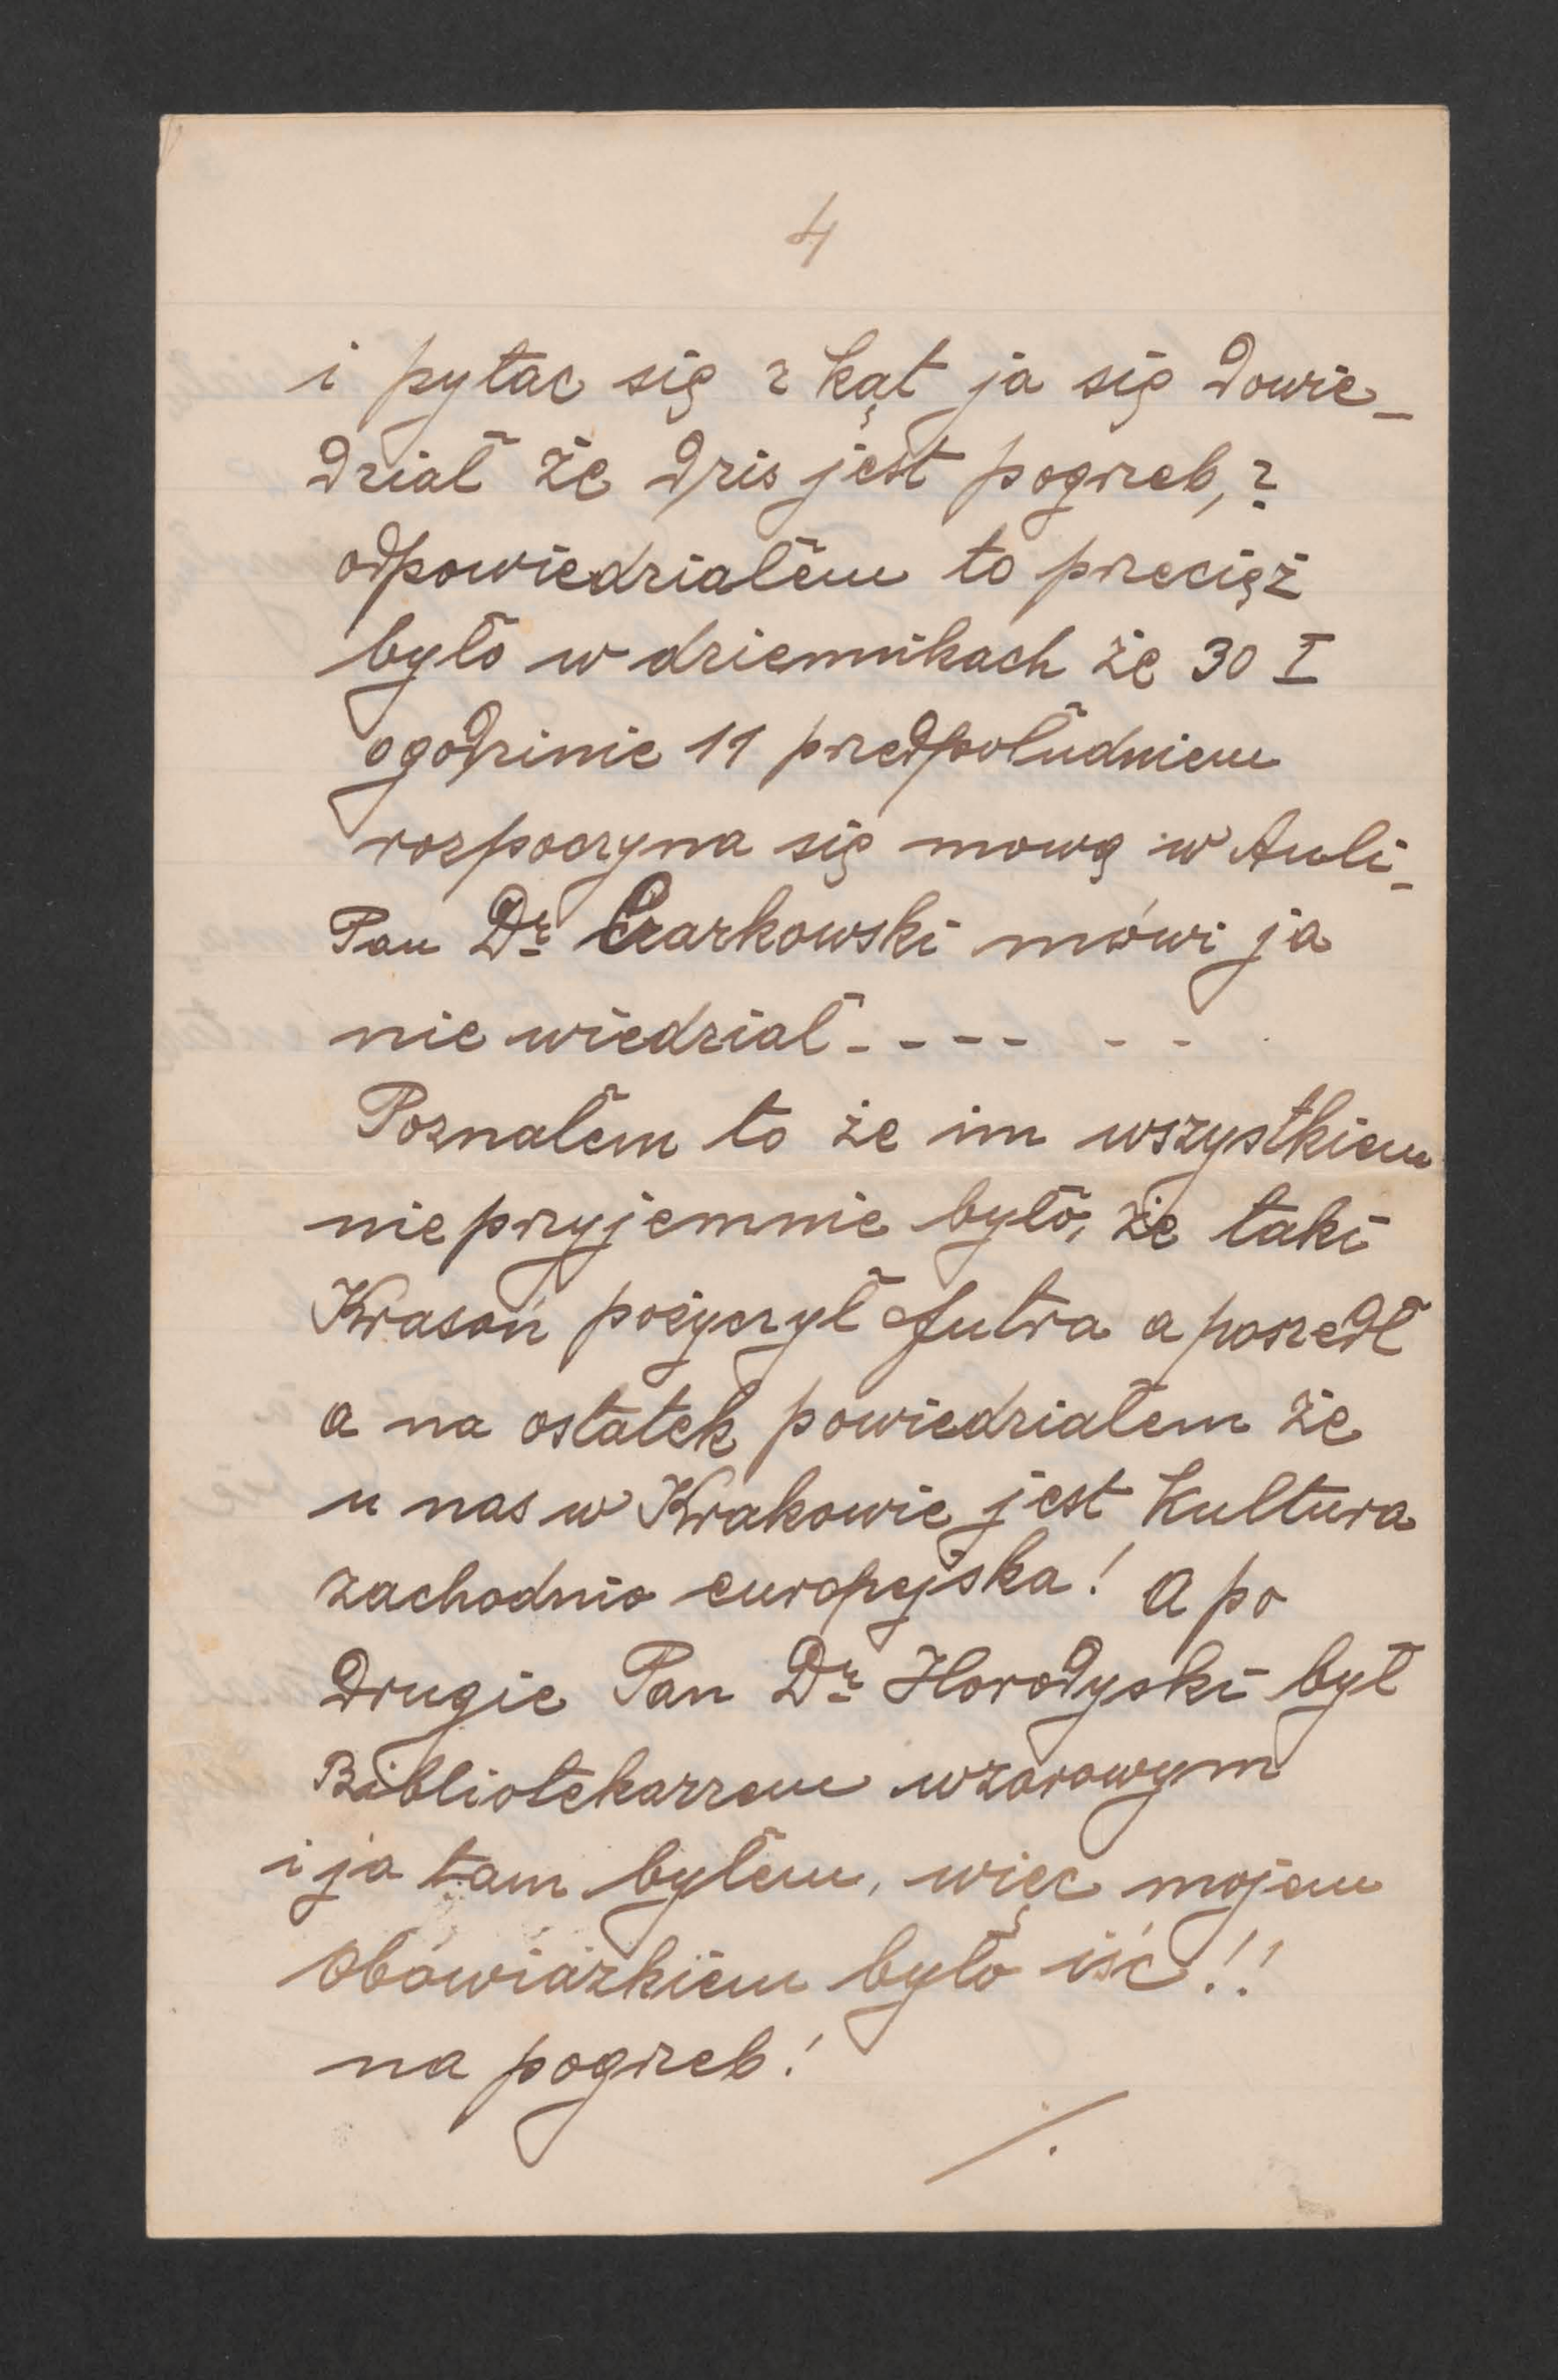 4
i pytac się z kąt ja się dowie_
dział że dzis jest pogrzeb,?
odpowiedziałem to przecięż
było w dziennikach że 30 I
ogodzinie 11 przedpołudniem
rozpoczyna się mową w Auli_
Pan Dr Czarkowski mówi ja
nie wiedział - - - - - -
Poznałem to że im wszystkiem
nieprzyjemnie było, że taki
Krasoń pożyczył futra a poszedł
a na ostatek powiedziałem że
u nas w Krakowie jest Kultura
zachodnio europejska! A po
drugie Pan Dr Horodyski był
Bibliotekarzem wzorowym
i ja tam byłem, więc mojem
Obowiazkiem było iść!!
na pogrzeb!
/.